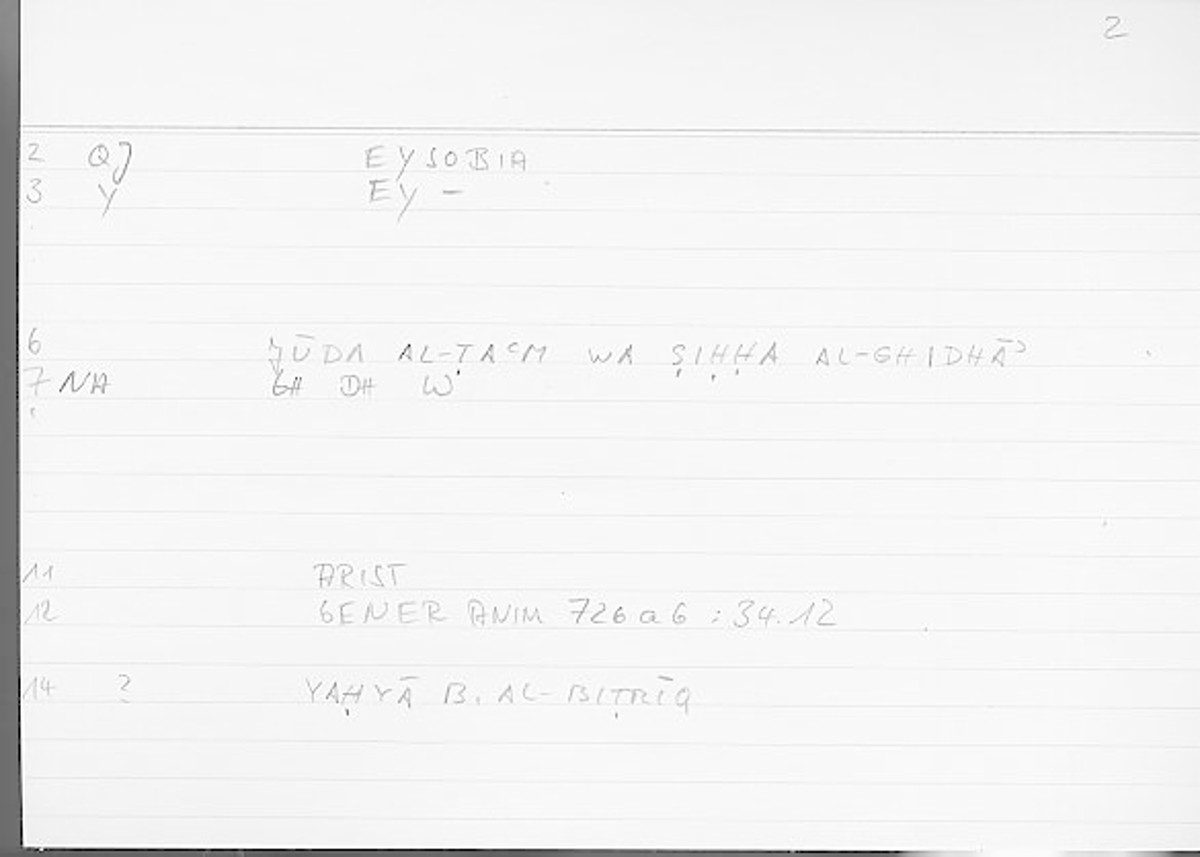 2
2 QJ EYSOBIA
3 Y EY –
6 ǦŪDA AL-ṬAʿM WA ṢIḤḤA AL-GHIDHĀʾ
7 NA GH DH W
11 ARIST
12 GENER ANIM 726 a 6 : 34.12
14 ? YAḤYĀ B. AL-BIṬRĪQ